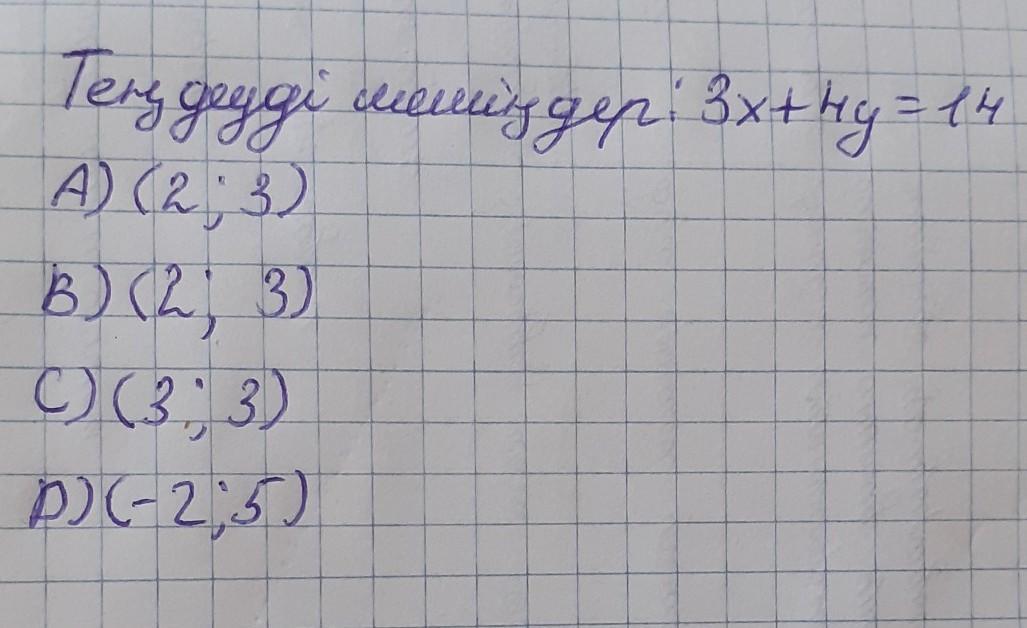 Теңдеуді шешіңдер: 3x+4y=14
A) (2; 3)
B) (2; 3)
C) (3; 3)
D) (-2; 5)